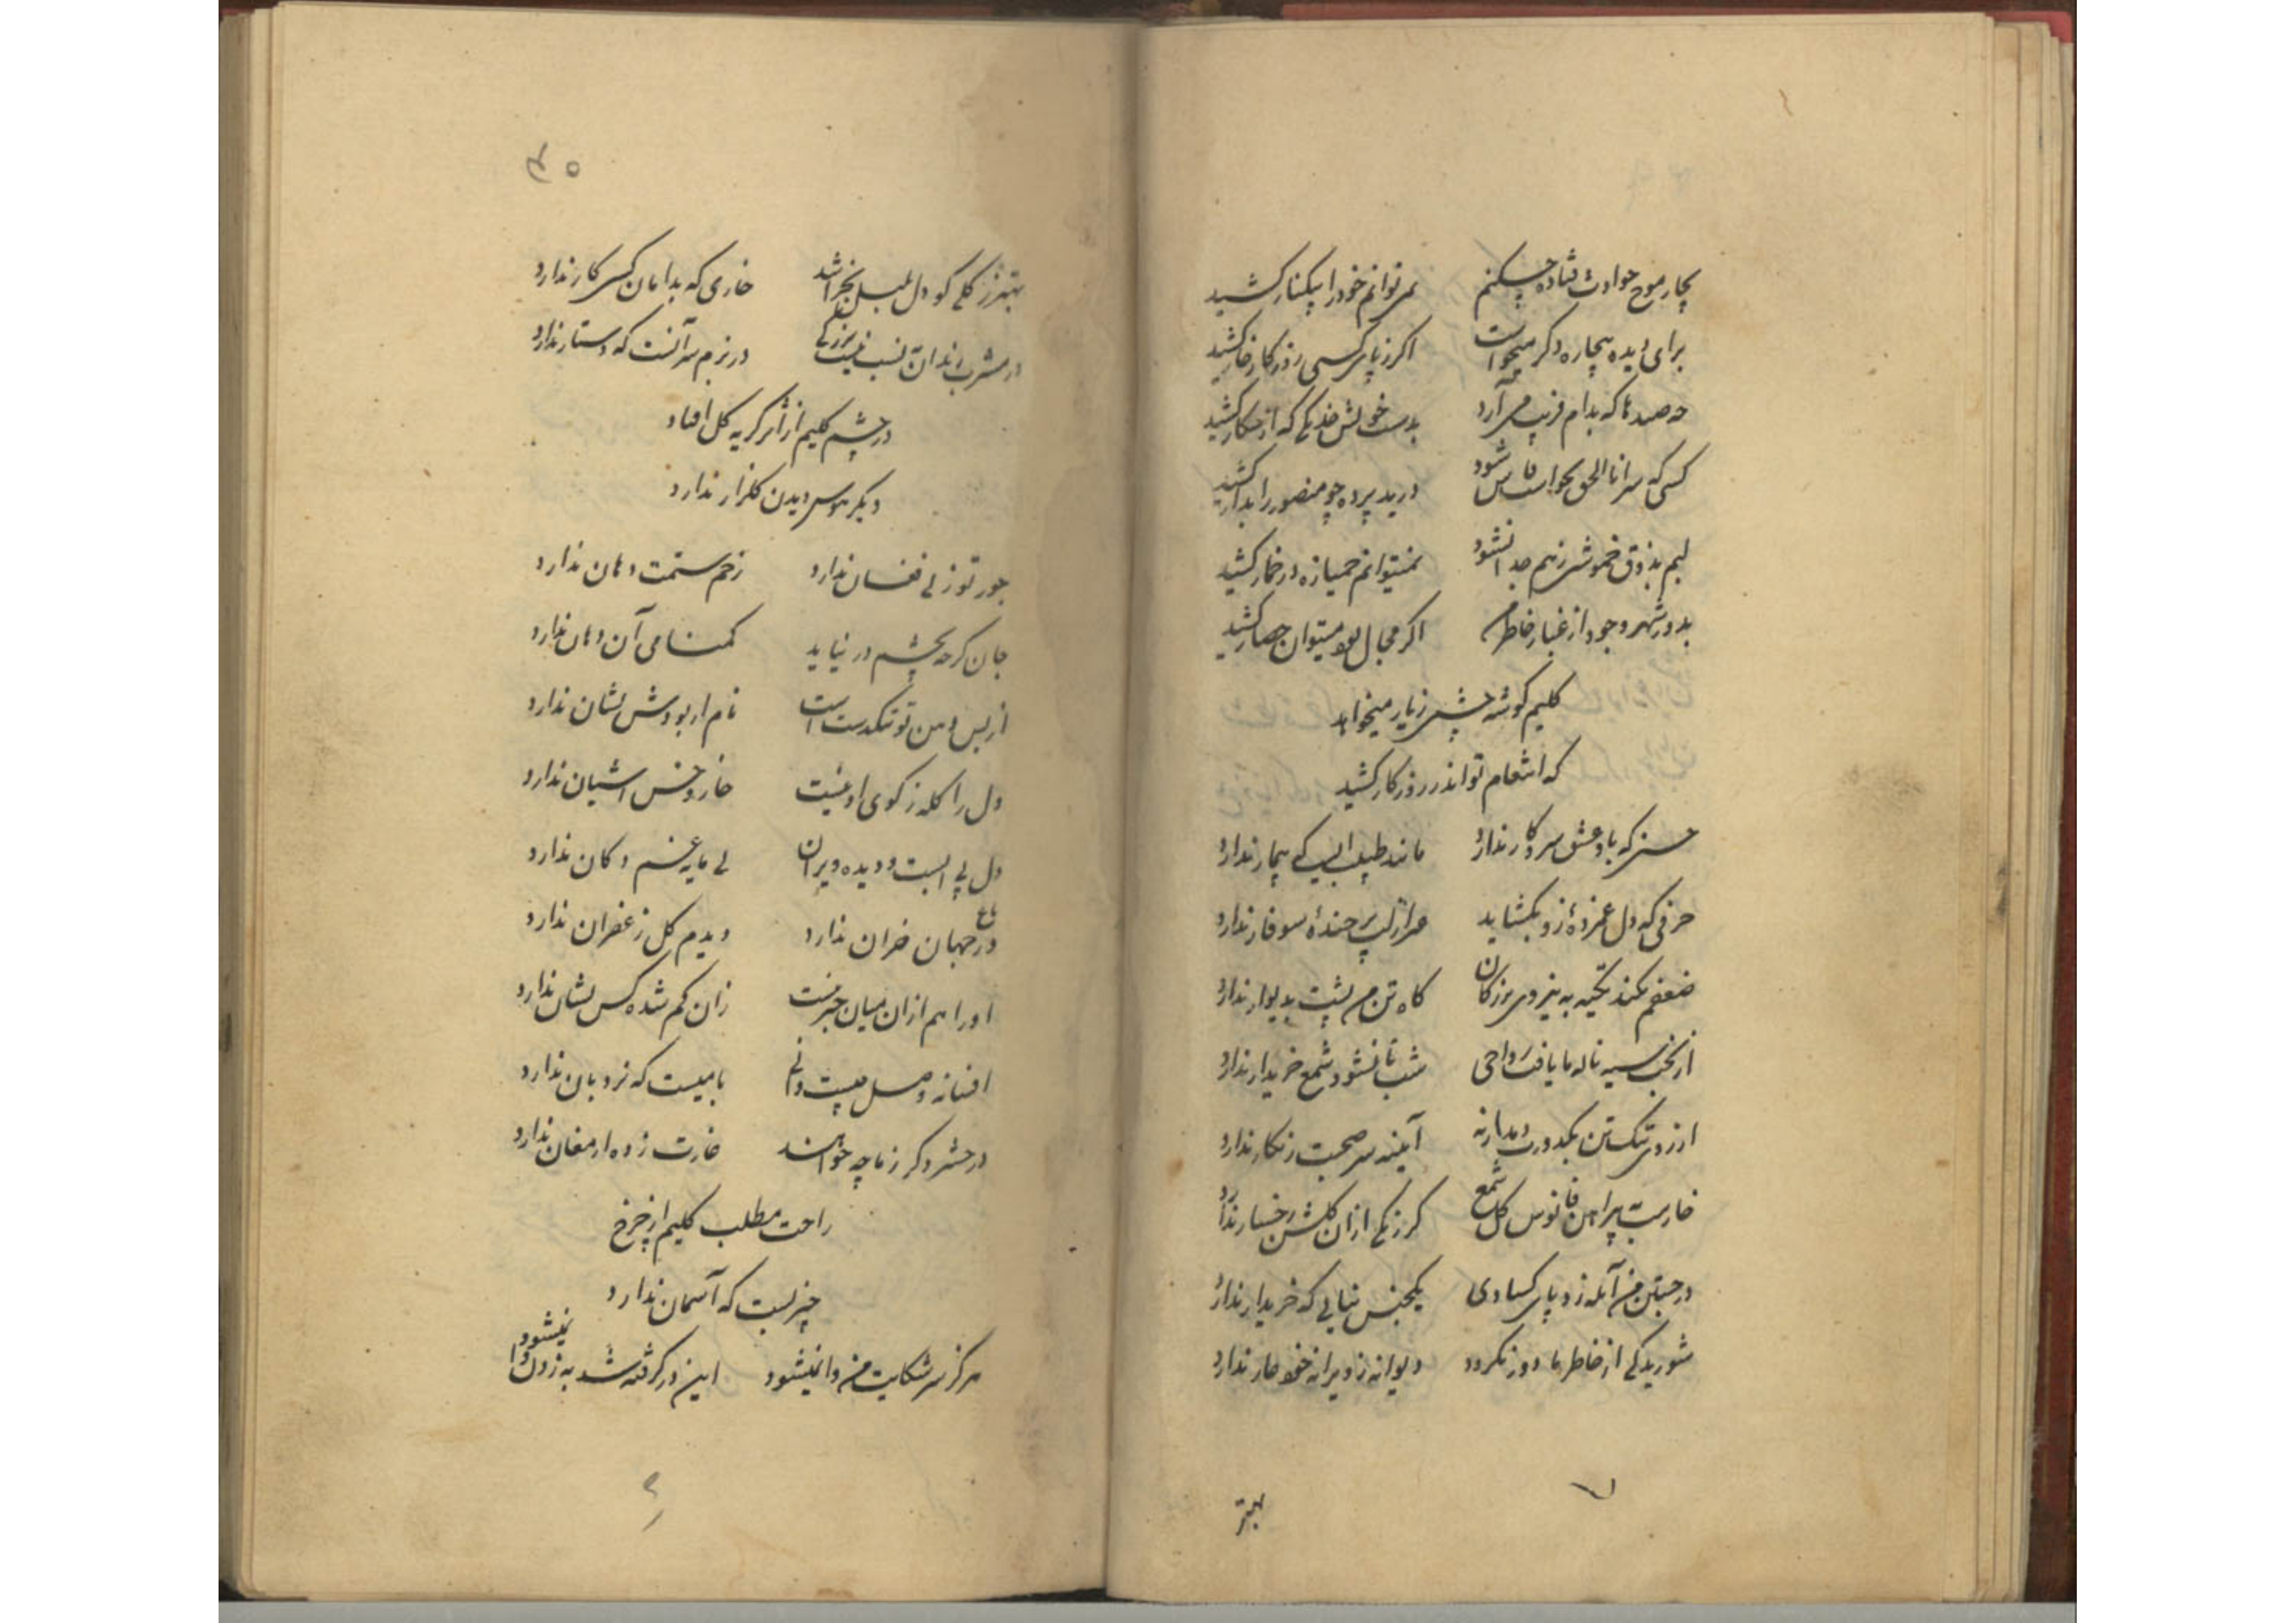 بچار موج حوادث فتاده چکنم نمی توانم خود را بیکنار کشید
برای دیده بیچاره دگر میخواست اگر ز پای کسی روزگار خار کشید
چه صیدها که بدام فریب می آرد بدست خویش خدنگی که از شکار کشید
کسی که سر اناالحق نخواست فاش شود درید پرده چو منصور را بدار کشید
لبم بذوق خموشی ز هم جدا نشود نمیتوانم خمیازه در خمار کشید
بدور شهر وجود از غبار خاطر من اگر مجال بود میتوان حصار کشید
کلیم گوشه چشمی ز یار میخواهد
که انتقام تواند ز روزگار کشید
حسنی که باو عشق سر و کار ندارد مانند طبیبی است که بیمار ندارد
حرفی که دل غمزدهٔ زو بگشاید جز از لب پر خندهٔ سوفار ندارد
ضعفم نکند تکیه به نیروی بزرگان کاه تن من پشت بدیوار ندارد
از بخت سیه ناله ما یافت رواجی شب تا نشود شمع خریدار ندارد
از زود شکستن بکدورت دمدار نه آیینه سر صحبت زنگار ندارد
خاریست پیراهن فانوس گل شمع گر رنگی از ان گلشن رخسار ندارد
در جستن من آبله زد پای کسادی یکجنس نیابی که خریدار ندارد
شوریدگی از خاطر ما دور نگردد دیوانه ز ویرانه خود عار ندارد
بهتر
۴۵
بهتر ز گلی کو دل بلبل بخراشد خاری که بدامان کسی کار ندارد
در مشرب رندان نسب نیست بزرگی در بزم سر آنست که دستار ندارد
در چشم کلیم از اثر گریه گل افتاد
دیگر هوس دیدن گلزار ندارد
جور تو ز پی فغان ندارد زخم ستمت دهان ندارد
جان گرچه بچشم در نیاید گمنامی آن دهان ندارد
از بس دهن تو تنگدست است نام ار بودش نشان ندارد
دل را گله ز کوی او نیست خار و خس آشیان ندارد
دل بی المست و دیده ویران بی مایه غم دکان ندارد
باغ در جهان خزان ندارد دیدم گل زعفران ندارد
او را هم از ان میان خبر نیست زان گم شده کس نشان ندارد
افسانه وصل چیست دانی بامیست که نردبان ندارد
در حشر دگر ز ما چه خواهند غارت زده ارمغان ندارد
راحت مطلب کلیم از چرخ
چیزیست که آسمان ندارد
هرگز سر شکایت من وا نمیشود این در گرفته شد به زدن وا نمیشود